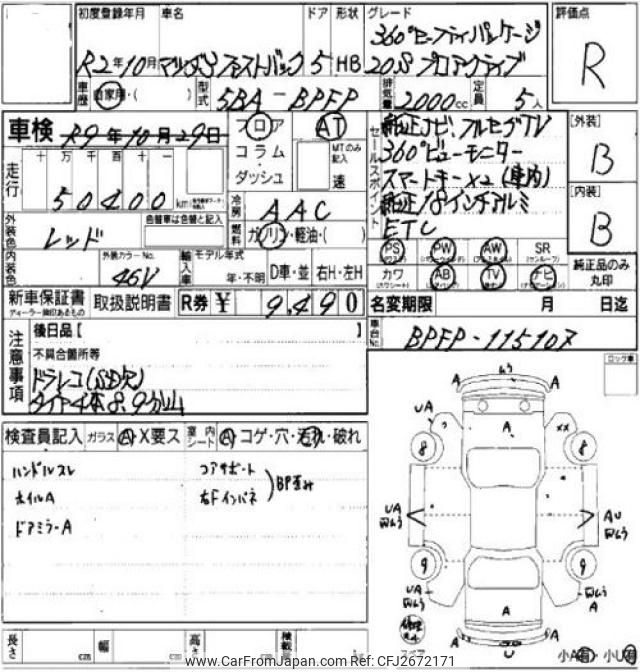 初度登録年月 車名 ドア 形状 グレード 評価点
R2年10月 マツダ3ファストバック 5 HB 360°セーフティパッケージ
20S プロアクティブ
R
車歴 自家用・( ) 型式 5BA-BPFP 排気量 2000cc 定員 5人
車検 R9年10月29日
フロア AT
コラム・ダッシュ MTのみ記入 速
セールスポイント
純正ナビ、フルセグTV
360°ビューモニター
スマートキー×2(車内)
純正18インチアルミ
ETC
[外装] B
[内装] B
走行 十 万 千 百 十 一
50400 km
冷房 AAC
外装色 レッド 色替車は色替と記入
燃料 ガソリン・軽油・( )
内装色 外装カラーNo. 46V
輸入車 モデル年式 年・不明 D車・並 右H・左H
PS PW AW SR
カワ AB TV ナビ
純正品のみ丸印
新車保証書 取扱説明書 R券 ¥ 9,490
ディーラー捺印あるもの
名変期限 月 日迄
車台No. BPFP-115107
注意事項
後日品[ ]
不具合箇所等
ドラレコ(SD欠)
タイヤ4本8.9分山
ロック車
検査員記入 ガラス A・X要ス 室内シート A・コゲ・穴・汚れ・破れ
ハンドルスレ コアサポート
ホイルA 右Fインパネ )BP歪み
ドアミラーA
A ムラ A
A
UA ××
8 8
UA 凹ムラ AU 凹ムラ
9 9
UA 凹ムラ 凹ムラ A
A
スペア
A U A
小A有・小U有
長さ cm 幅 cm 高さ cm 積載
www.CarFromJapan.com Ref: CFJ2672171